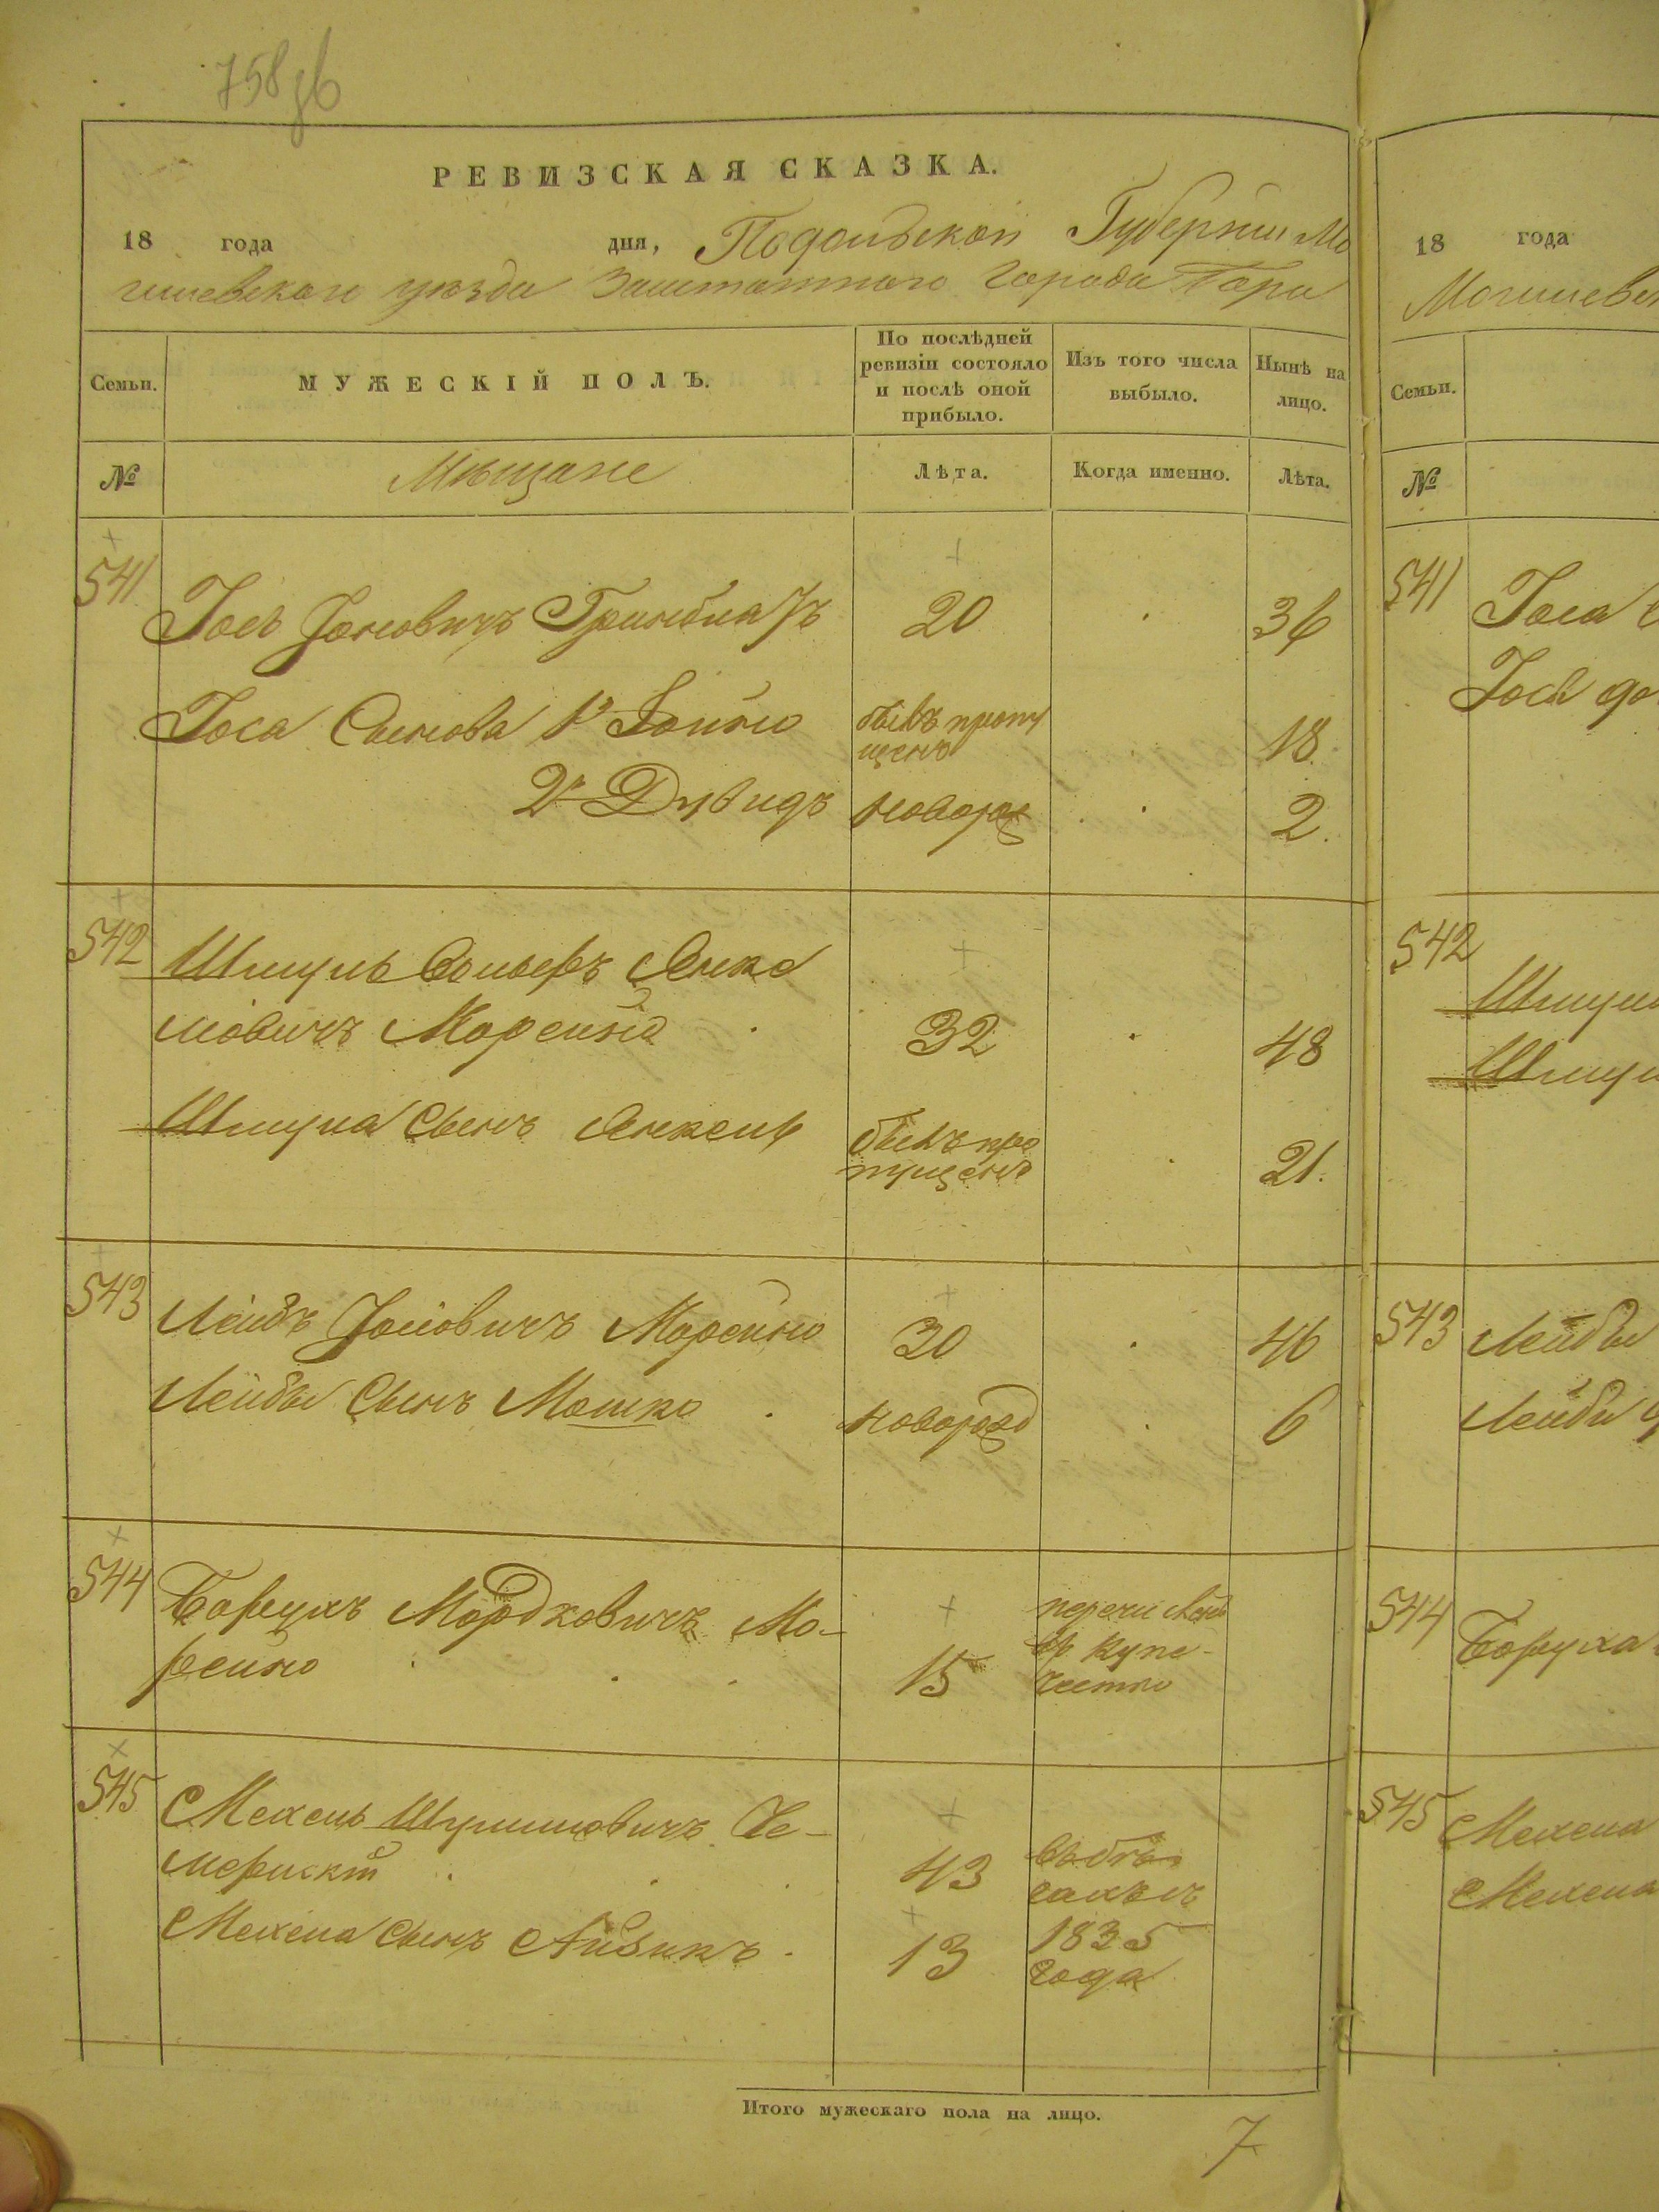 758 об
РЕВИЗСКАЯ СКАЗКА.
18 года дня, Подольской Губернии Мо
гилевскаго уезда Заштатного Города Бара
Семьи.
МУЖЕСКІЙ ПОЛЪ.
По послѣдней
ревизіи состояло
и послѣ оной
прибыло.
Изъ того числа
выбыло.
Нынѣ на
лицо.
№
Мѣщане
Лѣта.
Когда именно.
Лѣта.
541
Іось Гринблатъ 20 36
Іоса Сынова 1й былъ пропу
щенъ 18
2й Дувидъ новорож 2
542
Шмуль Вольфъ Анке
Морейно 32 48
Шмуля Сынъ былъ про
пущенъ 21.
543
Лейбъ Морейно 30 46
Лейбы Сынъ Мошко новорожд 6
544
Борухъ Мордковичъ Мо-
рейно 15
перечисленъ
въ купе-
чество
545
Мехель Шулимовичъ Че-
мерискій 43
Мехеля Сынъ Айзикъ 13
въ бѣ
гахъ съ
1835
года
Итого мужескаго пола на лицо.
7
18 года
Могилевск
Семьи.
№
541
Іоса
Іося до
542
Шмул
Шмул
543
Лейбы
Лейби
544
Боруха
545
Мехеля
Мехеля